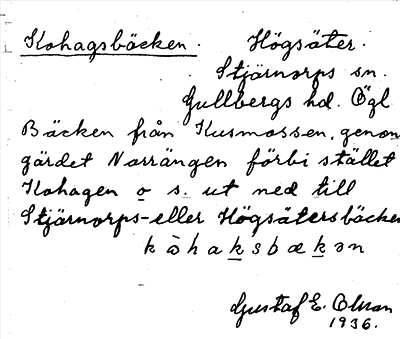 Kohagsbäcken. Högsäter.
Stjärnorps sn.
Gullbergs hd. Ögl
Bäcken från Kusmossen, genom
gärdet Norrängen förbi stället
Kohagen o s. ut ned till
Stjärnorps- eller Högsätersbäcken
kòhaksbækən
Gustaf E. Olsson
1936.